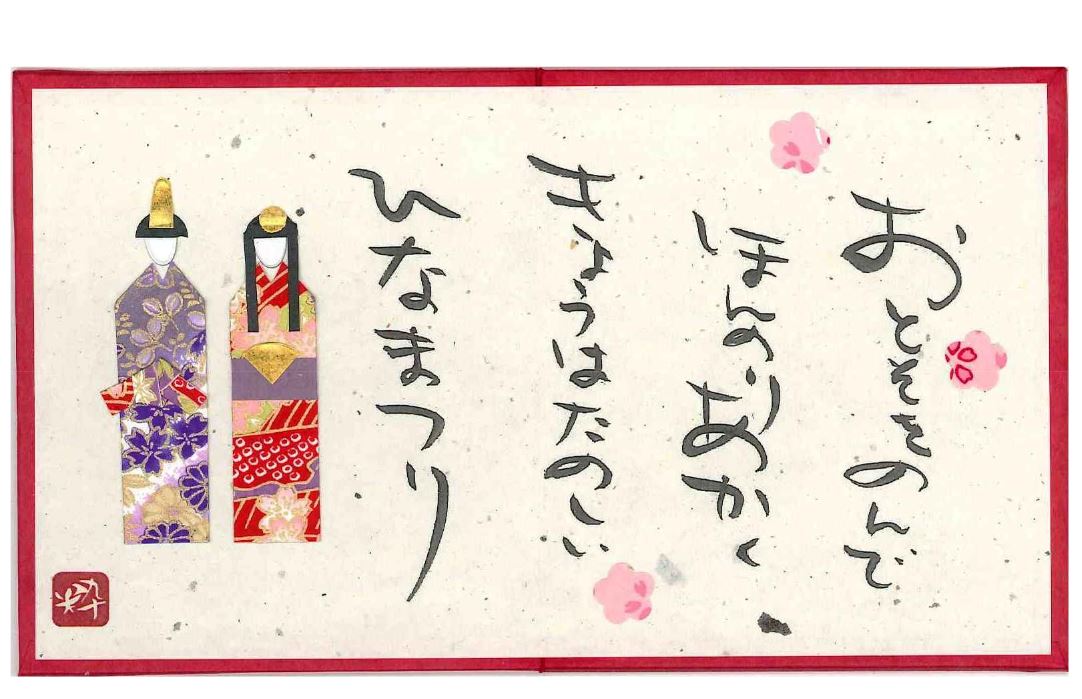 おとそをのんで
ほんのりあかく
きょうはたのしい
ひなまつり
粋